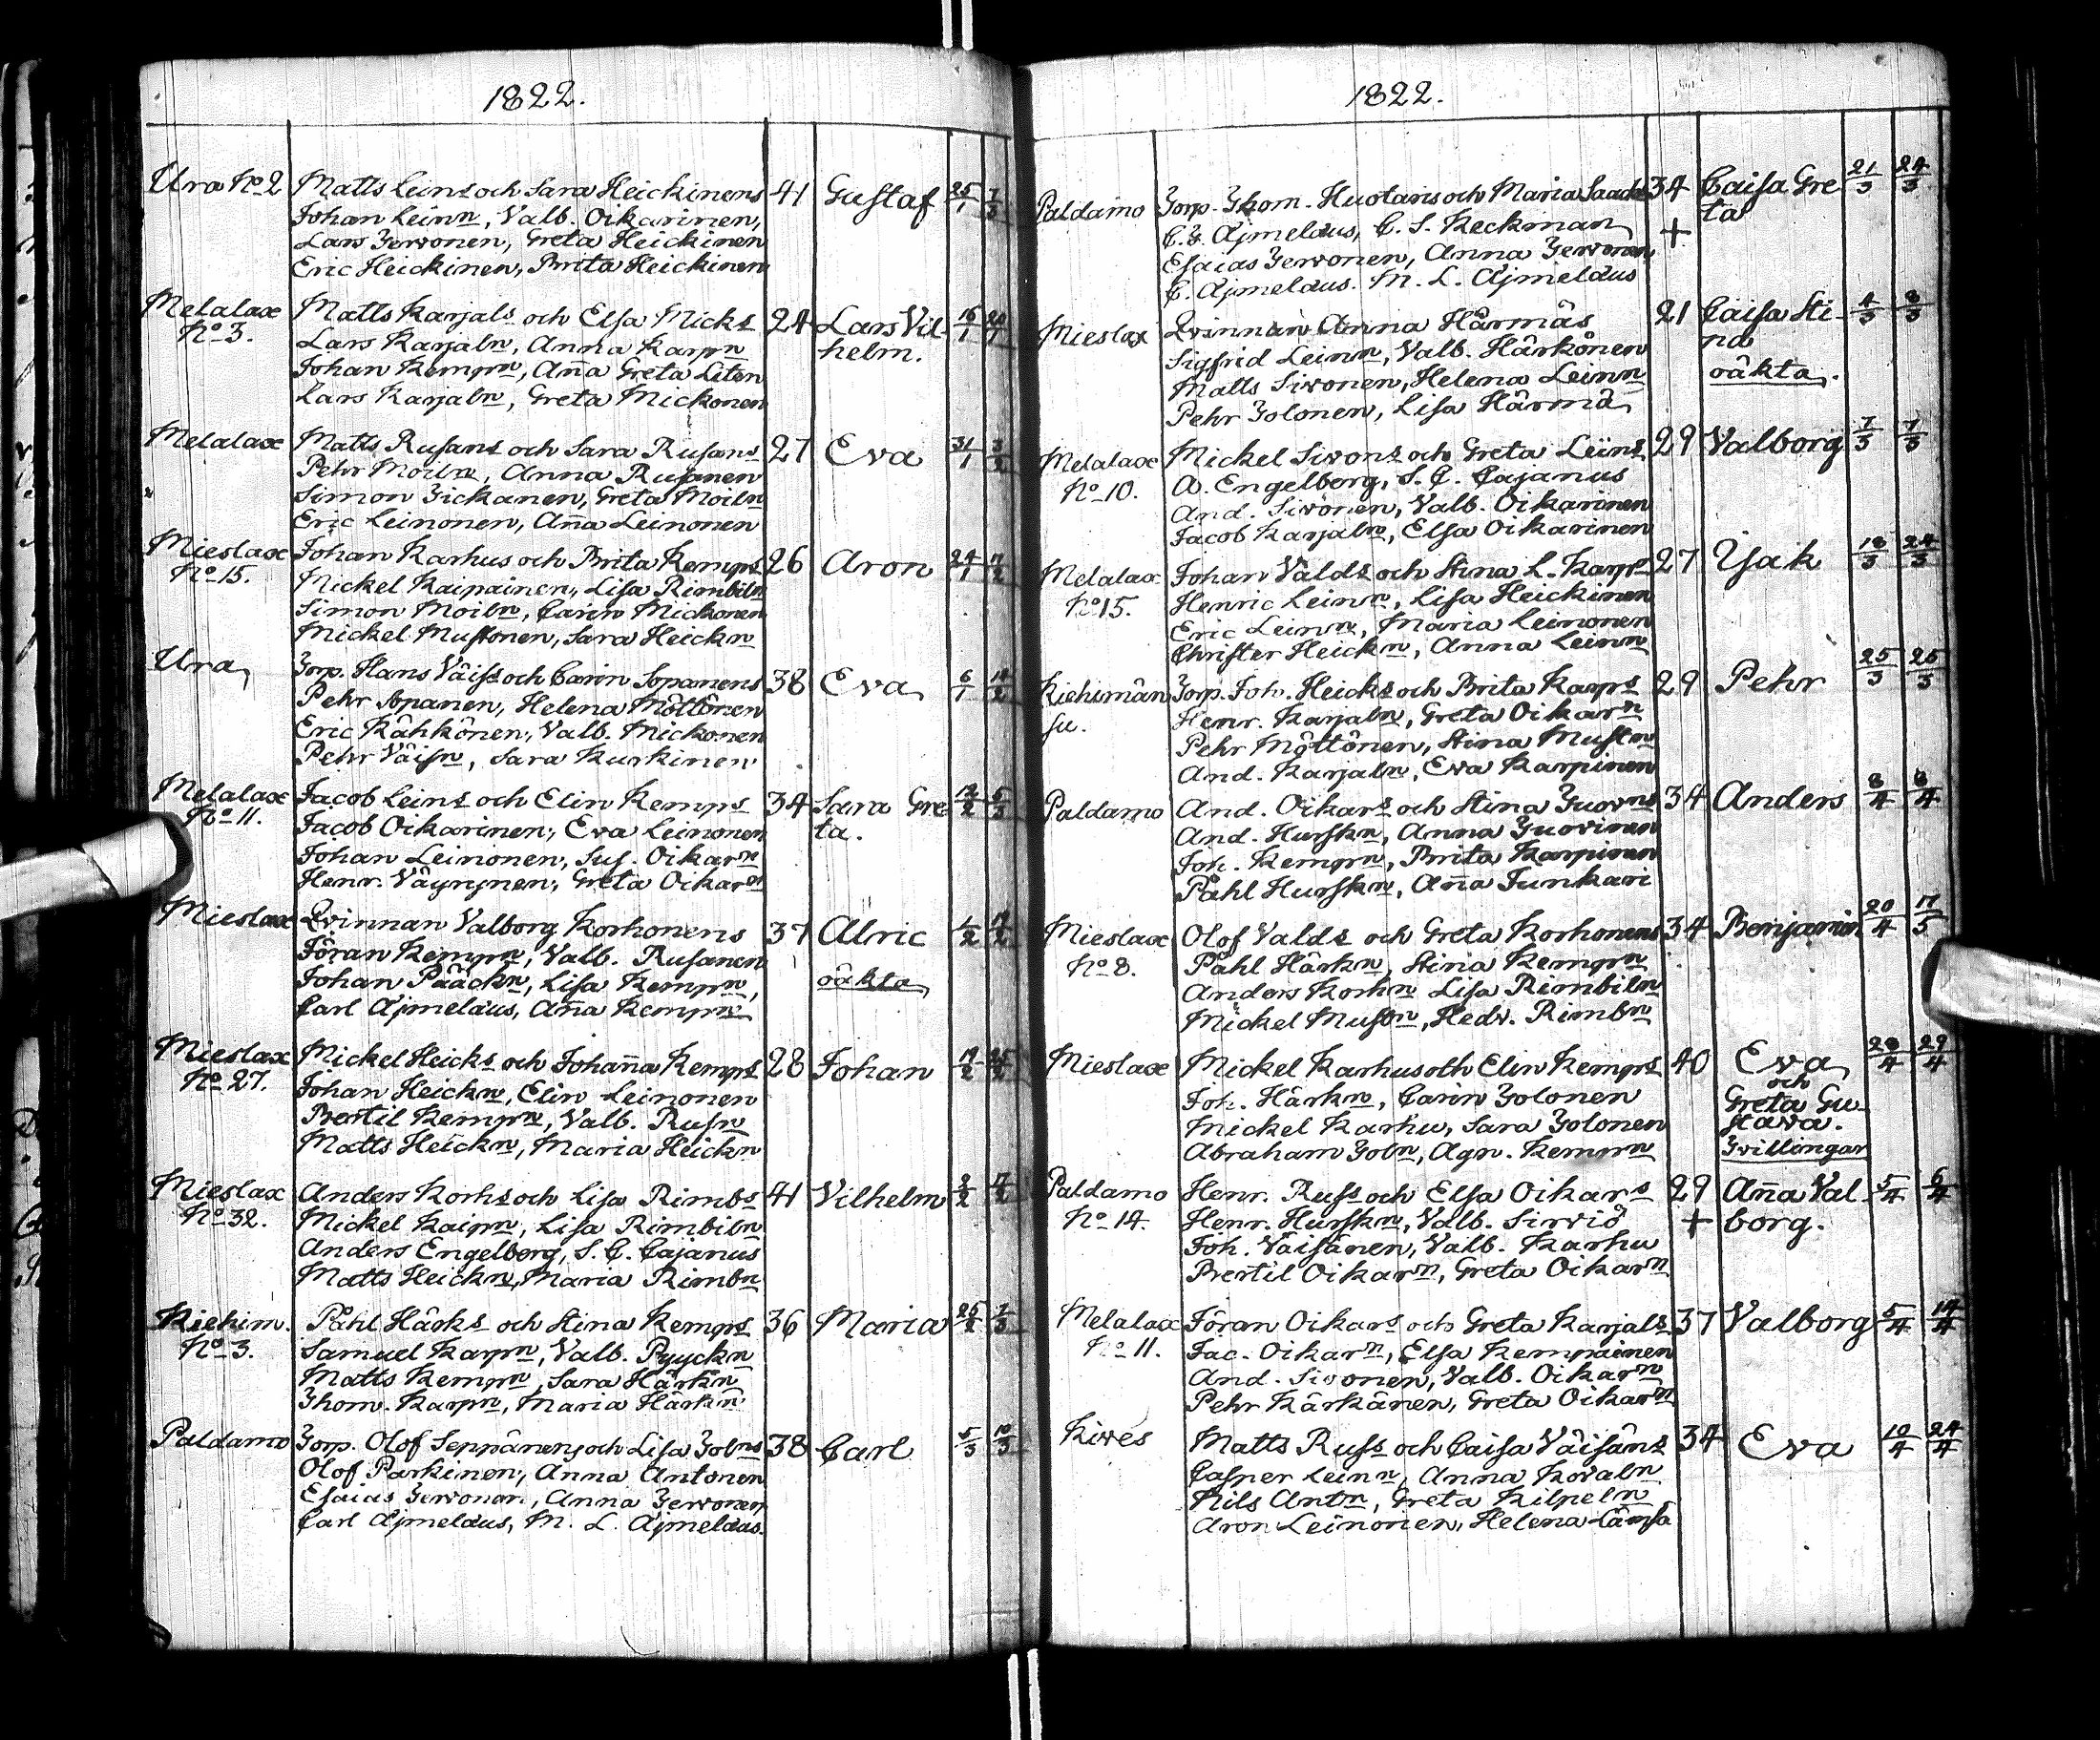 1822.
Ura No 2 Matts Leins och Sara Heickinens 41 Gustaf 25/1 7/3
Johan Leinn, Valb. Oikarinen,
Lars Jervonen, Greta Heickinen
Eric Heickinen, Brita Heickinen
Melalax Matts Karjals och Elsa Micks 24 Lars Vil- 16/1 20/1
No 3. Lars Karjaln, Anna Karpn helm.
Johan Kempn, Aña Greta Liten
Lars Karjaln, Greta Mickonen
Melalax Matts Rusans och Sara Rusans 27 Eva 31/1 3/2
Pehr Moiln, Anna Rusanen
Simon Jickanen, Greta Moiln
Eric Leinonen, Aña Leinonen
Mieslax Johan Karhus och Brita Kemps 26 Aron 24/1 17/2
No 15. Mickel Kaipainen, Lisa Rimbiln
Simon Moiln, Carin Mickonen
Mickel Mustonen, Sara Heickn
Ura Torp. Hans Väiss och Carin Sopanens 38 Eva 6/1 14/2
Pehr Sopanen, Helena Möttönen
Eric Kähkönen, Valb. Mickonen
Pehr Väisn, Sara Kurkinen
Melalax Jacob Leins och Elin Kemps 34 Sara Gre 12/2 6/3
No 11. Jacob Oikarinen, Eva Leinonen ta.
Johan Leinonen, Sus. Oikarn
Henr. Väyrynen, Greta Oikarn
Mieslax Qvinnan Valborg Korhonens 37 Alric 1/2 17/2
Jöran Kempn, Valb. Rusanen
Johan Pääckn, Lisa Kempn, oäkta
Carl Ajmelæus, Aña Kempn
Mieslax Mickel Heicks och Johaña Kemps 28 Johan 19/2 25/2
No 27. Johan Heickn, Elin Leinonen
Bertil Kempn, Valb. Rusn
Matts Heickn, Maria Heickn
Mieslax Anders Korhs och Lisa Rimbs 41 Vilhelm 2/2 17/2
No 32. Mickel Kaipn, Lisa Rimbiln
Anders Engelberg, S. C. Cajanus
Matts Heickn, Maria Rimbn
Kiehim. Påhl Härks och Stina Kemps 36 Maria 25/2 7/3
No 3. Samuel Karpn, Valb. Pyyckn
Matts Kempn, Sara Härkn
Thom. Karpn, Maria Härkn
Paldamo Torp. Olof Seppänens och Lisa Tolns 38 Carl 5/3 10/3
Olof Parkinen, Anna Antonen
Esaias Jervonen, Anna Jervonen
Carl Ajmelæus, M. L. Ajmelæus.
1822.
Paldamo Torp. Thom. Huotaris och Maria 34 Caisa Gre 21/3 24/3
C. G. Ajmelæus, C. S. Keckman + ta
Esaias Jervonen, Anna Jervonen
C. Ajmelæus. M. L. Ajmelæus
Mieslax Qvinnan Anna Härmäs 21 Caisa Sti- 4/3 8/3
Sigfrid Leinn, Valb. Härkönen na
Matts Sivonen, Helena Leinn oäkta.
Pehr Tolonen, Lisa Härmä
Melalax Mickel Sivons och Greta Leins 29 Valborg 7/3 7/3
No 10. A. Engelberg, S. C. Cajanus
And. Sivonen, Valb. Oikarinen
Jacob Karjaln, Elsa Oikarinen
Melalax Johan Valds och Stina L. Karps 27 Isak 18/3 24/3
No 15. Henric Leinn, Lisa Heickinen
Eric Leinn, Maria Leinonen
Christer Heickn, Anna Leinn
Kiehimän Torp. Joh. Heicks och Brita Karps 29 Pehr 25/3 25/3
su. Henr. Karjaln, Greta Oikarn
Pehr Möttönen, Stina Mustn
And. Karjaln, Eva Karpinen
Paldamo And. Oikars och Stina Juovns 34 Anders 8/4 8/4
And. Hurskn, Anna Juovinen
Joh. Kempn, Brita Karpinen
Påhl Hurskn, Aña Junkari
Mieslax Olof Valds och Greta Korhonens 34 Benjamin 20/4 17/5
No 8. Påhl Härkn, Stina Kempn
Anders Korhn Lisa Rimbiln
Mickel Mustn, Hedv. Rimbn
Mieslax Mickel Karhus och Elin Kemps 40 Eva 28/4 29/4
och
Joh. Härkn, Carin Tolonen Greta Gu-
Mickel Karhu, Sara Tolonen stava.
Abraham Toln, Agn. Kempn Tvillingar
Paldamo Henr. Russ och Elsa Oikars 29 Aña Val- 5/4 6/4
No 14. Henr. Hurskn, Valb. Sirviö + borg.
Joh. Väisänen, Valb. Karhu
Bertil Oikarn, Greta Oikarn
Melalax Jöran Oikars och Greta Karjals 37 Valborg 5/4 14/4
No 11. Jac. Oikarn, Elsa Kempainen
And. Sivonen, Valb. Oikarn
Pehr Kärkänen, Greta Oikarn
Kives Matts Russ och Caisa Väisäns 34 Eva 10/4 24/4
Casper Leinn, Anna Kovaln
Nils Antn, Greta Kilpeln
Aron Leinonen, Helena Lämsä